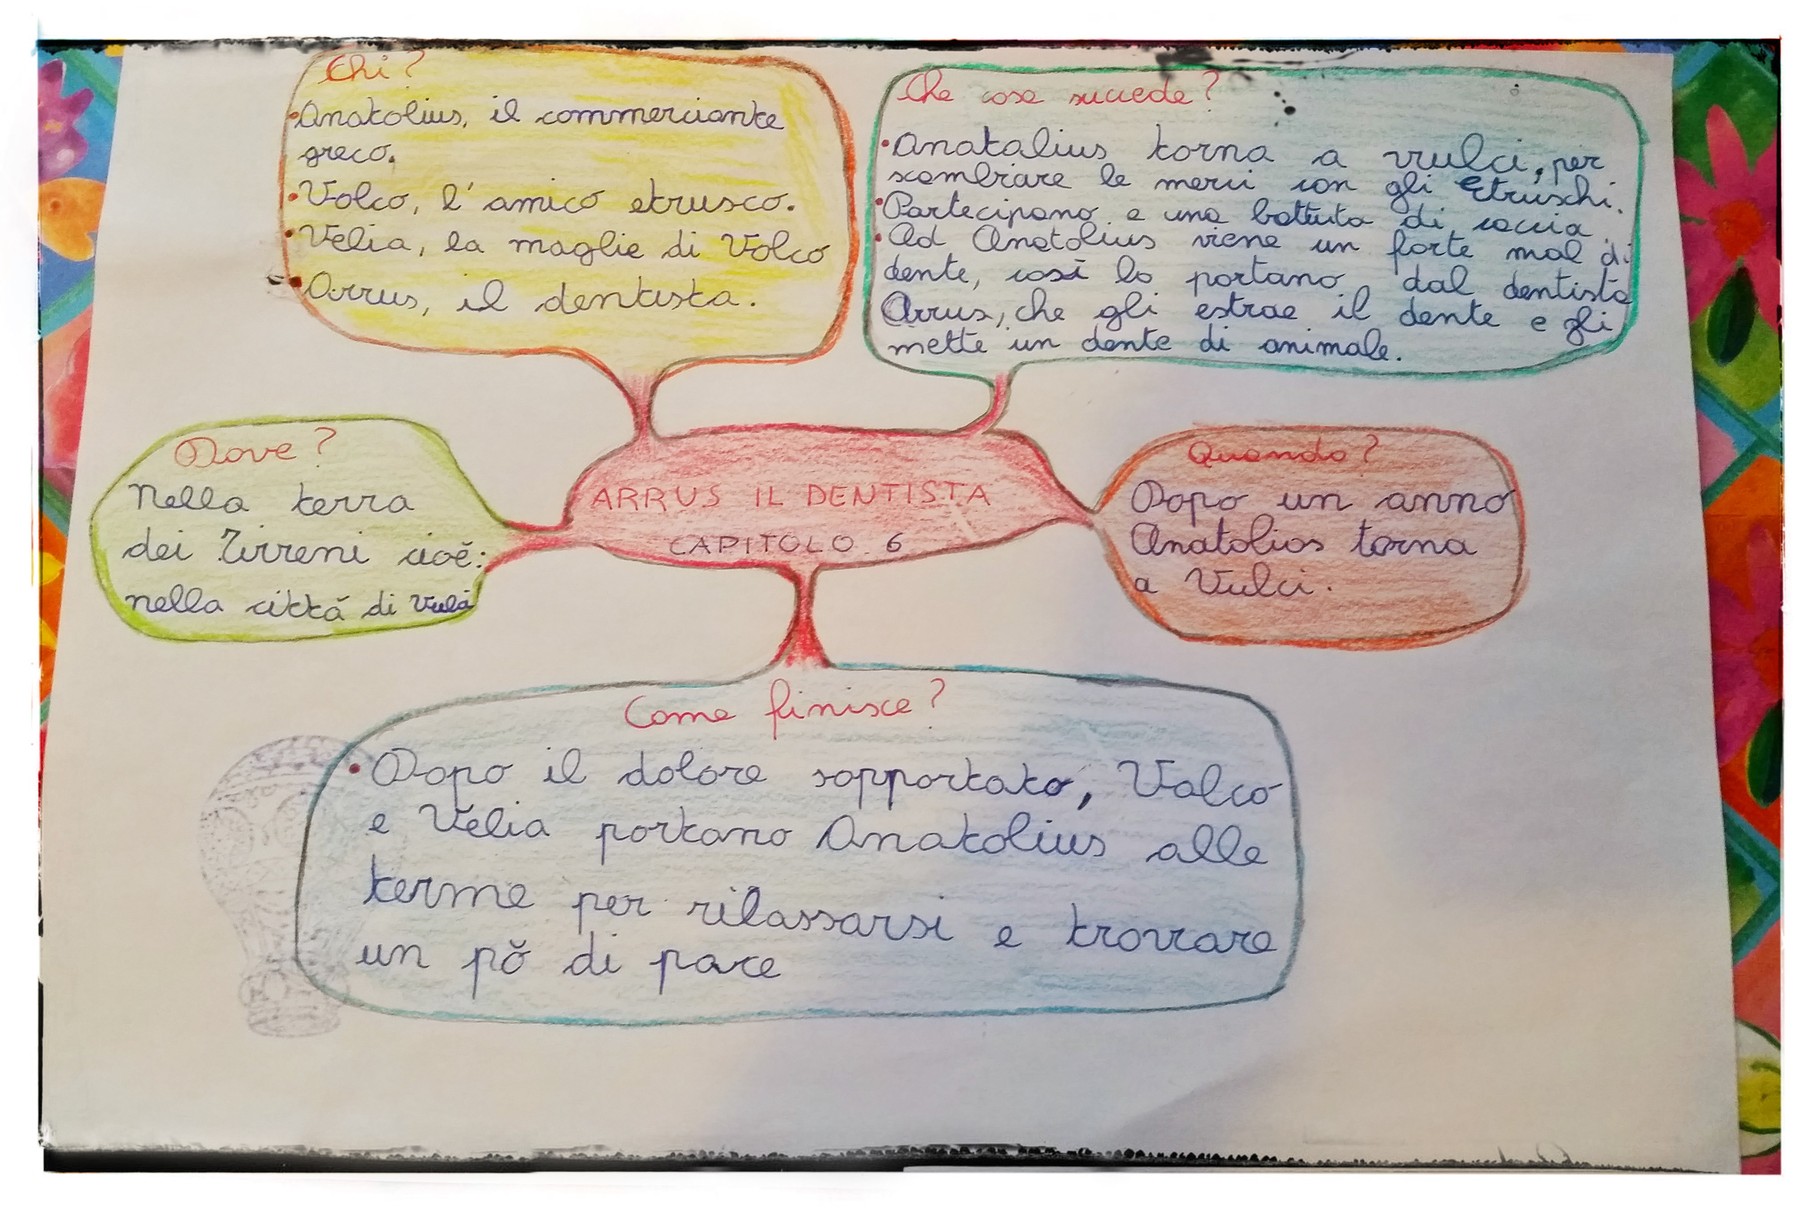 Chi?
•Anatolius, il commerciante
greco.
•Volco, l'amico etrusco.
•Velia, la maglie di Volco
•Arrus, il dentista.
Che cosa succede?
•Anatalius torna a Vulci, per
scambiare le merci con gli Etruschi.
•Partecipano a una battuta di caccia
•Ad Anatolius viene un forte mal di
dente, così lo portano dal dentista
Arrus, che gli estrae il dente e gli
mette un dente di animale.
Dove?
Nella terra
dei Tirreni cioè:
nella città di Vulci
ARRUS IL DENTISTA
CAPITOLO 6
Quando?
Dopo un anno
Anatolios torna
a Vulci.
Come finisce?
•Dopo il dolore sopportato, Volco
e Velia portano Anatolius alle
terme per rilassarsi e trovare
un pò di pace